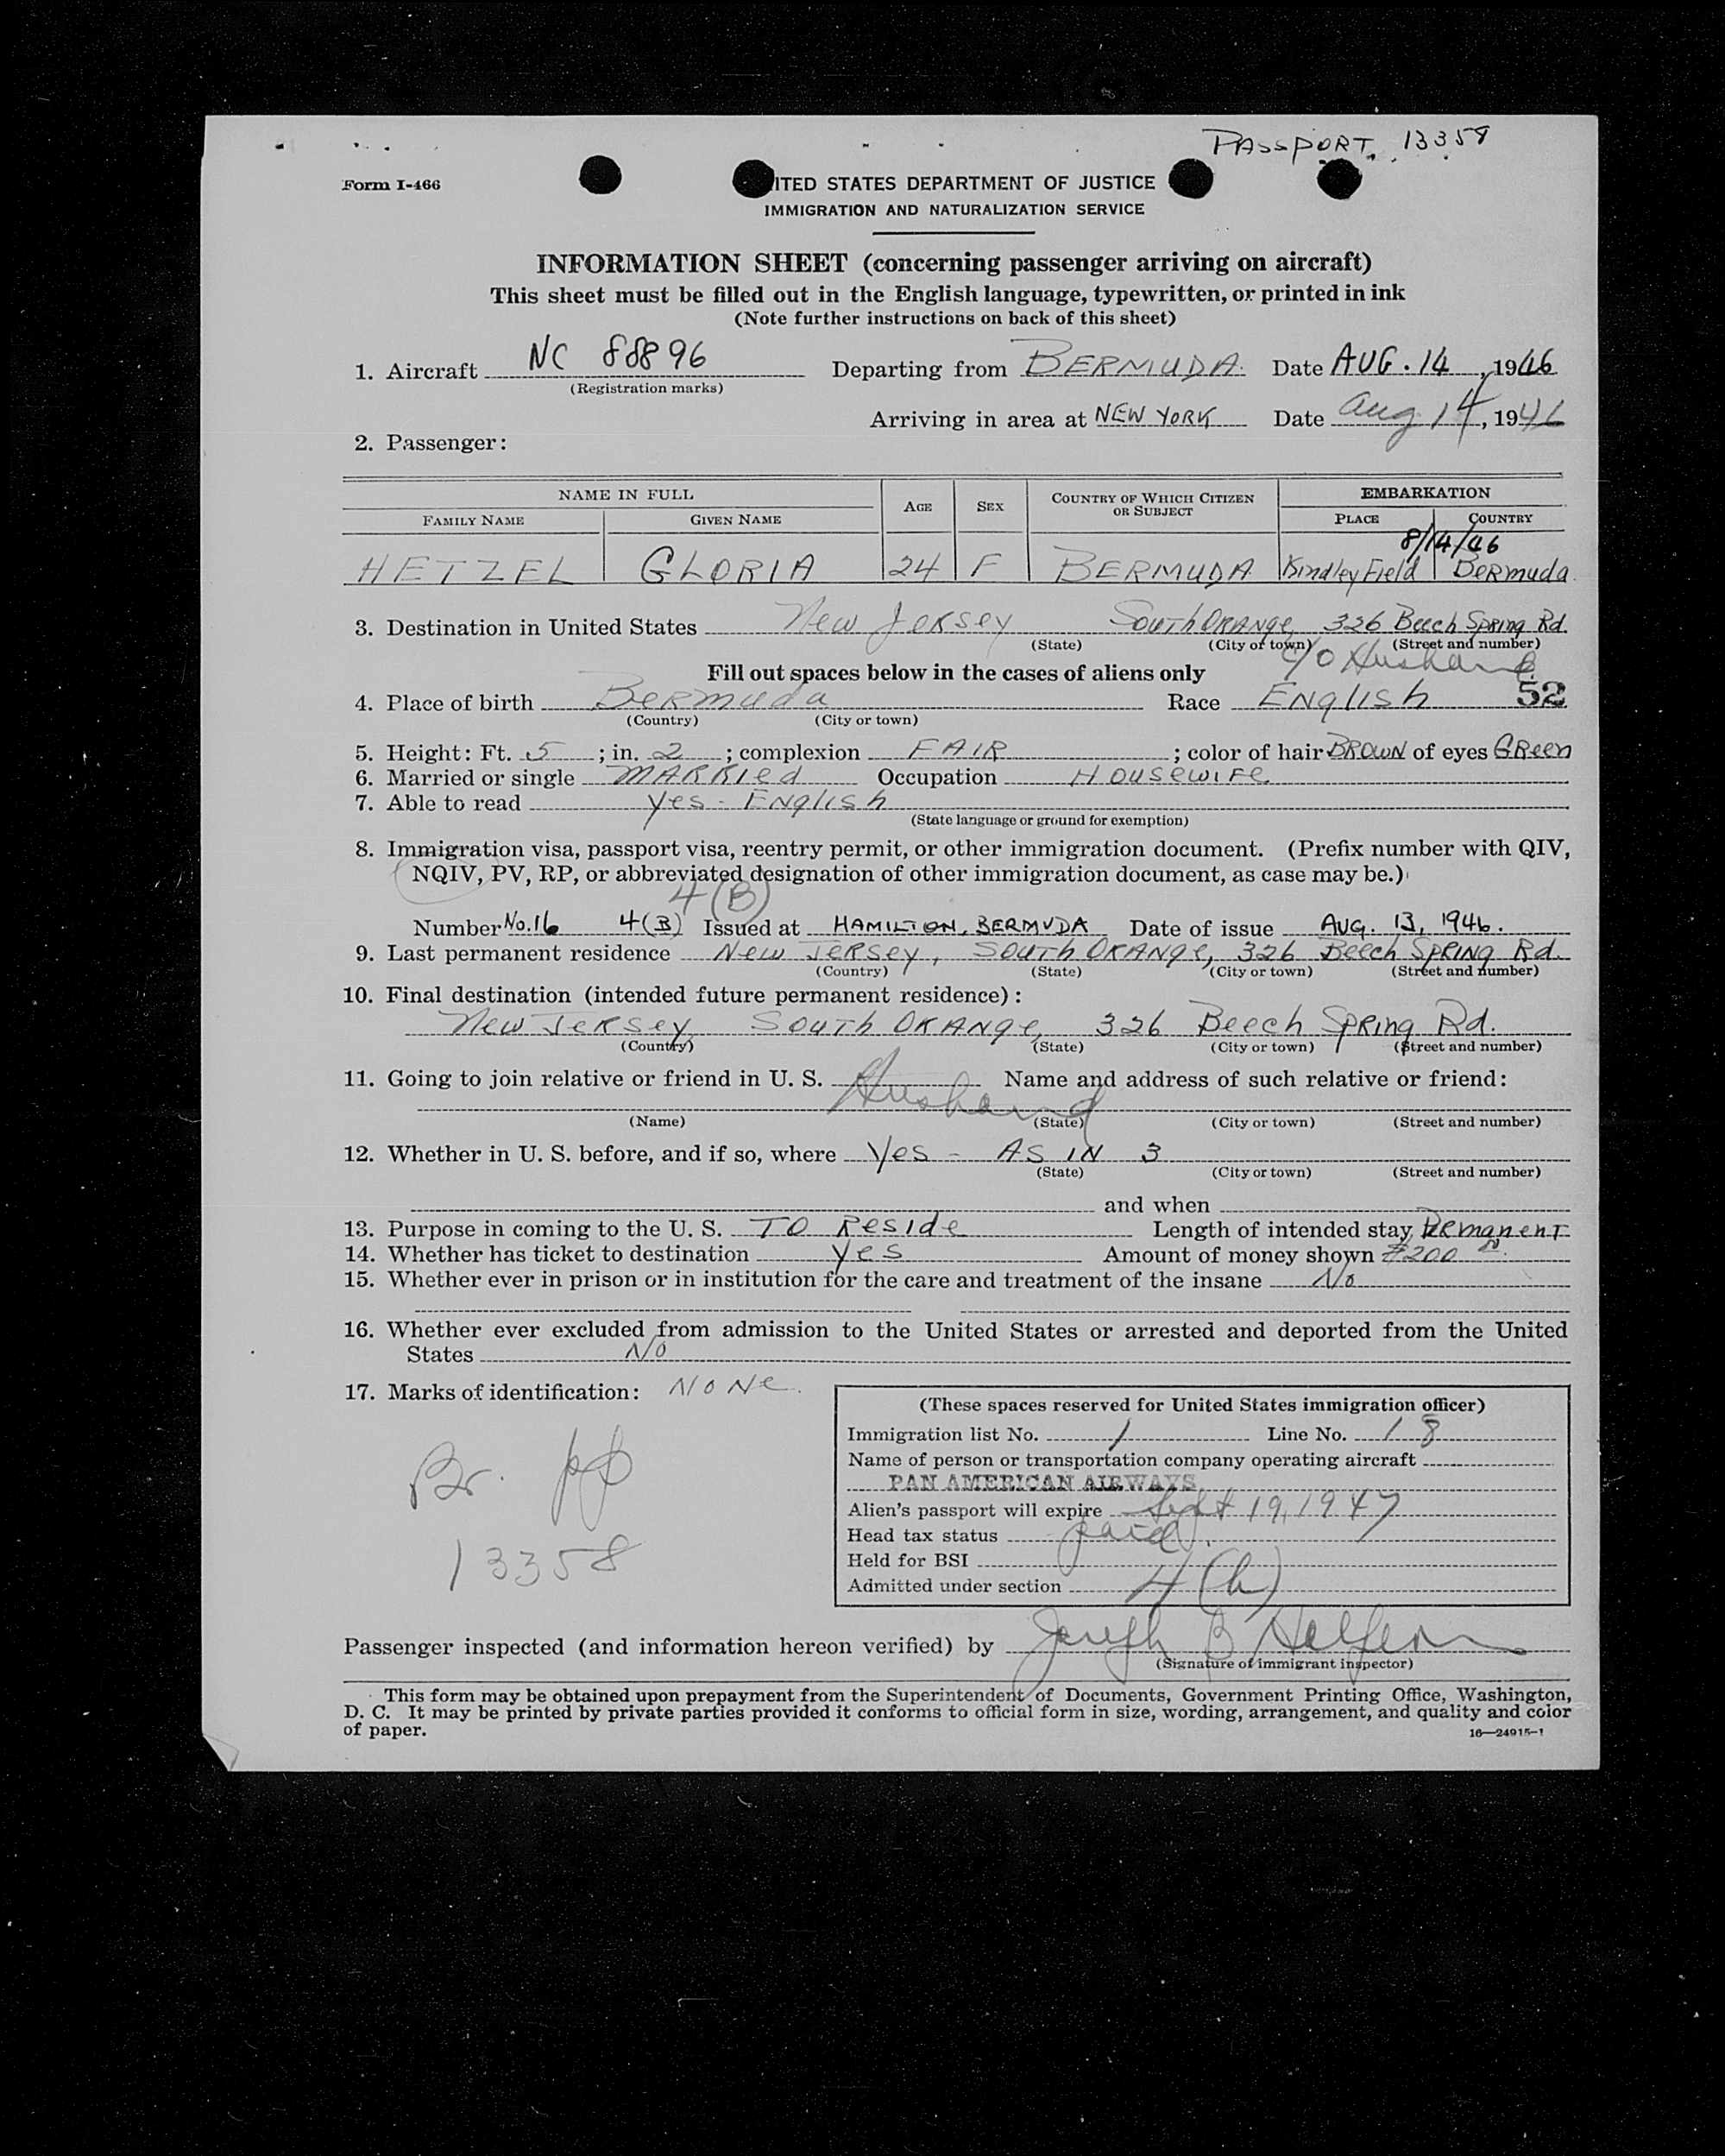 PASSPORT. 13358
Form I-466
ITED STATES DEPARTMENT OF JUSTICE
IMMIGRATION AND NATURALIZATION SERVICE
INFORMATION SHEET (concerning passenger arriving on aircraft)
This sheet must be filled out in the English language, typewritten, or printed in ink
(Note further instructions on back of this sheet)
1. Aircraft NC 88896 Departing from BERMUDA. Date AUG. 14, 1946
(Registration marks)
Arriving in area at NEW YORK Date Aug 14, 1946
2. Passenger:
NAME IN FULL AGE SEX COUNTRY OF WHICH CITIZEN OR SUBJECT EMBARKATION
FAMILY NAME GIVEN NAME PLACE COUNTRY
8/14/46
HETZEL GLORIA 24 F BERMUDA Kindley Field Bermuda
3. Destination in United States New Jersey South Orange, 326 Beech Spring Rd.
(State) (City or town) (Street and number)
c/o Husband
Fill out spaces below in the cases of aliens only
4. Place of birth Bermuda Race English 52
(Country) (City or town)
5. Height: Ft. 5; in. 2; complexion FAIR; color of hair BROWN of eyes GREEN
6. Married or single MARRIED Occupation HOUSEWIFE
7. Able to read Yes - English
(State language or ground for exemption)
8. Immigration visa, passport visa, reentry permit, or other immigration document. (Prefix number with QIV,
NQIV, PV, RP, or abbreviated designation of other immigration document, as case may be.)
4 (B)
Number No. 16 4(B) Issued at HAMILTON, BERMUDA Date of issue AUG. 13, 1946.
9. Last permanent residence New Jersey, South Orange, 326 Beech Spring Rd.
(Country) (State) (City or town) (Street and number)
10. Final destination (intended future permanent residence):
New Jersey South Orange, 326 Beech Spring Rd.
(Country) (State) (City or town) (Street and number)
11. Going to join relative or friend in U. S. Husband Name and address of such relative or friend:
(Name) (State) (City or town) (Street and number)
12. Whether in U. S. before, and if so, where Yes - AS IN 3
(State) (City or town) (Street and number)
and when
13. Purpose in coming to the U. S. TO Reside Length of intended stay Permanent
14. Whether has ticket to destination Yes Amount of money shown $200
15. Whether ever in prison or in institution for the care and treatment of the insane No
16. Whether ever excluded from admission to the United States or arrested and deported from the United
States No
17. Marks of identification: NONE.
(These spaces reserved for United States immigration officer)
Immigration list No. 1 Line No. 18
Name of person or transportation company operating aircraft
PAN AMERICAN AIRWAYS
Br. pp
13358
Alien's passport will expire Sept 19, 1947
Head tax status paid
Held for BSI
Admitted under section 4(b)
Passenger inspected (and information hereon verified) by Joseph B
(Signature of immigrant inspector)
This form may be obtained upon prepayment from the Superintendent of Documents, Government Printing Office, Washington,
D. C. It may be printed by private parties provided it conforms to official form in size, wording, arrangement, and quality and color
of paper.
16—24915-1